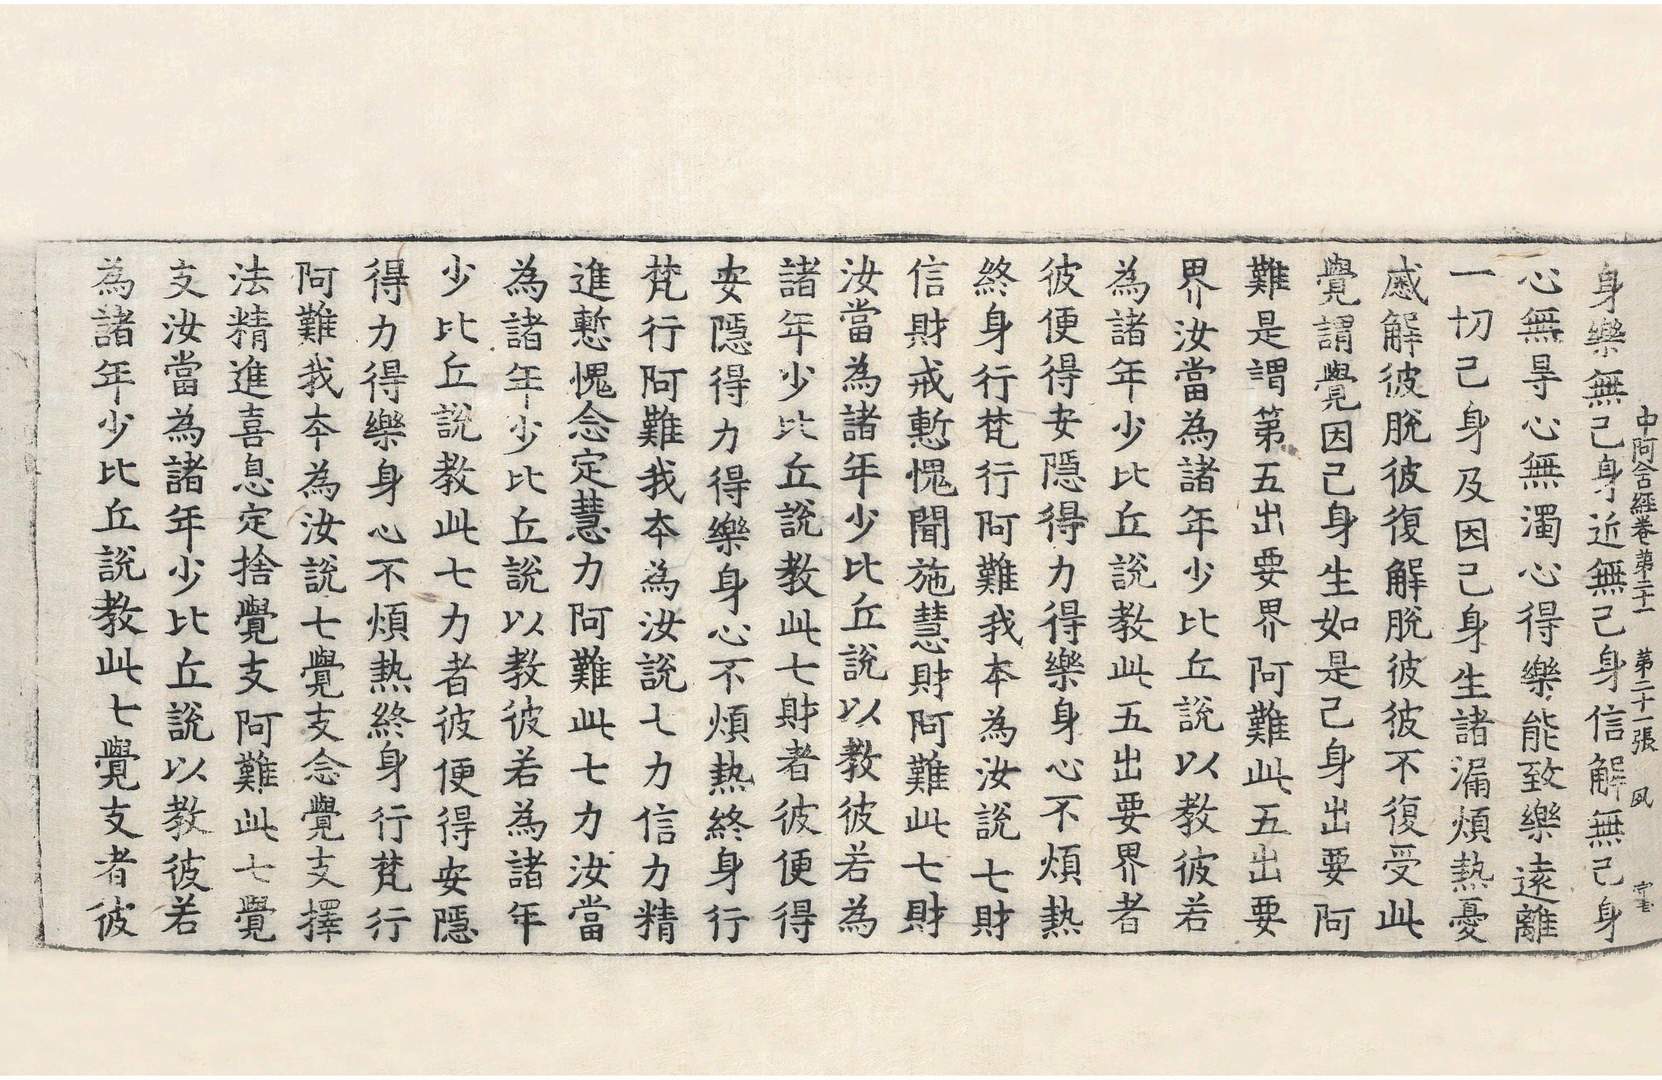 中阿含經卷第二十一 第二十一張 夙
身樂無己身近無己身信解無己身
心無㝵心無濁心得樂能致樂遠離
一切己身及因己身生諸漏煩熱憂
慼解彼脫彼復解脫彼彼不復受此
覺謂覺因己身生如是己身出要阿
難是謂第五出要界阿難此五出要
界汝當為諸年少比丘說以教彼若
為諸年少比丘說教此五出要界者
彼便得安隱得力得樂身心不煩熱
終身行梵行阿難我本為汝說七財
信財戒慙愧聞施慧財阿難此七財
汝當為諸年少比丘說以教彼若為
諸年少比丘說教此七財者彼便得
安隱得力得樂身心不煩熱終身行
梵行阿難我本為汝說七力信力精
進慙愧念定慧力阿難此七力汝當
為諸年少比丘說以教彼若為諸年
少比丘說教此七力者彼便得安隱
得力得樂身心不煩熱終身行梵行
阿難我本為汝說七覺支念覺支擇
法精進喜息定捨覺支阿難此七覺
支汝當為諸年少比丘說以教彼若
為諸年少比丘說教此七覺支者彼